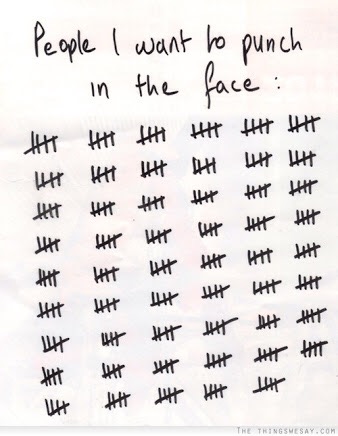 People I want to punch
in the face :
THE THINGSWESAY.COM